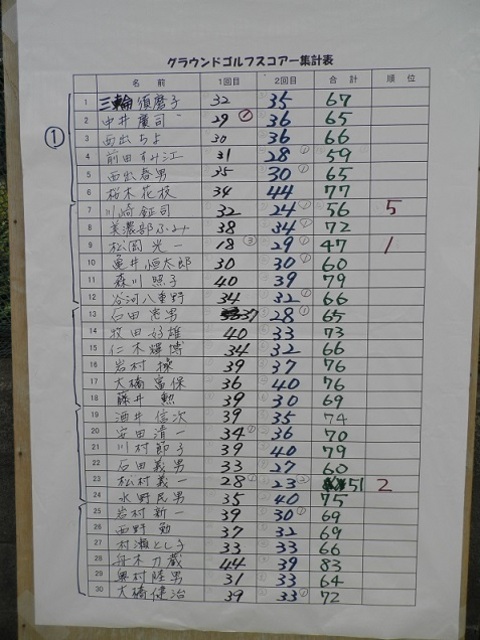 グラウンドゴルフスコアー集計表
名前 1回目 2回目 合計 順位
①
1 三輪須磨子 32 35 67
2 中井廣司 29 ① 36 65
3 西出ちよ 30 36 66
4 前田すみ江 31 28 ① 59
5 西出春男 35 30 ① 65
6 桜木花枝 34 44 77
7 川崎鉦司 32 24 ① 56 5
8 美濃部ふみ 38 34 ① 72
9 松岡光一 18 ③ 29 ① 47 1
10 亀井恒太郎 30 30 ① 60
11 森川照子 40 39 79
12 谷河八重野 34 32 ① 66
13 石田忠男 37 28 ① 65
14 牧田好雄 40 33 73
15 仁木輝博 34 32 66
16 岩村操 39 37 76
17 大橋富保 36 40 76
18 藤井勲 39 30 69
19 酒井信次 39 35 74
20 安田清一 34 ① 36 70
21 川村節子 39 40 79
22 石田義男 33 27 60
23 松村義一 28 ① 23 ② 51 2
24 水野民男 35 40 75
25 岩村新一 39 30 ① 69
26 西野勉 37 32 69
27 村瀬とし子 33 33 66
28 舟木力蔵 44 39 83
29 奥村陸男 31 33 64
30 大橋健治 39 33 ① 72